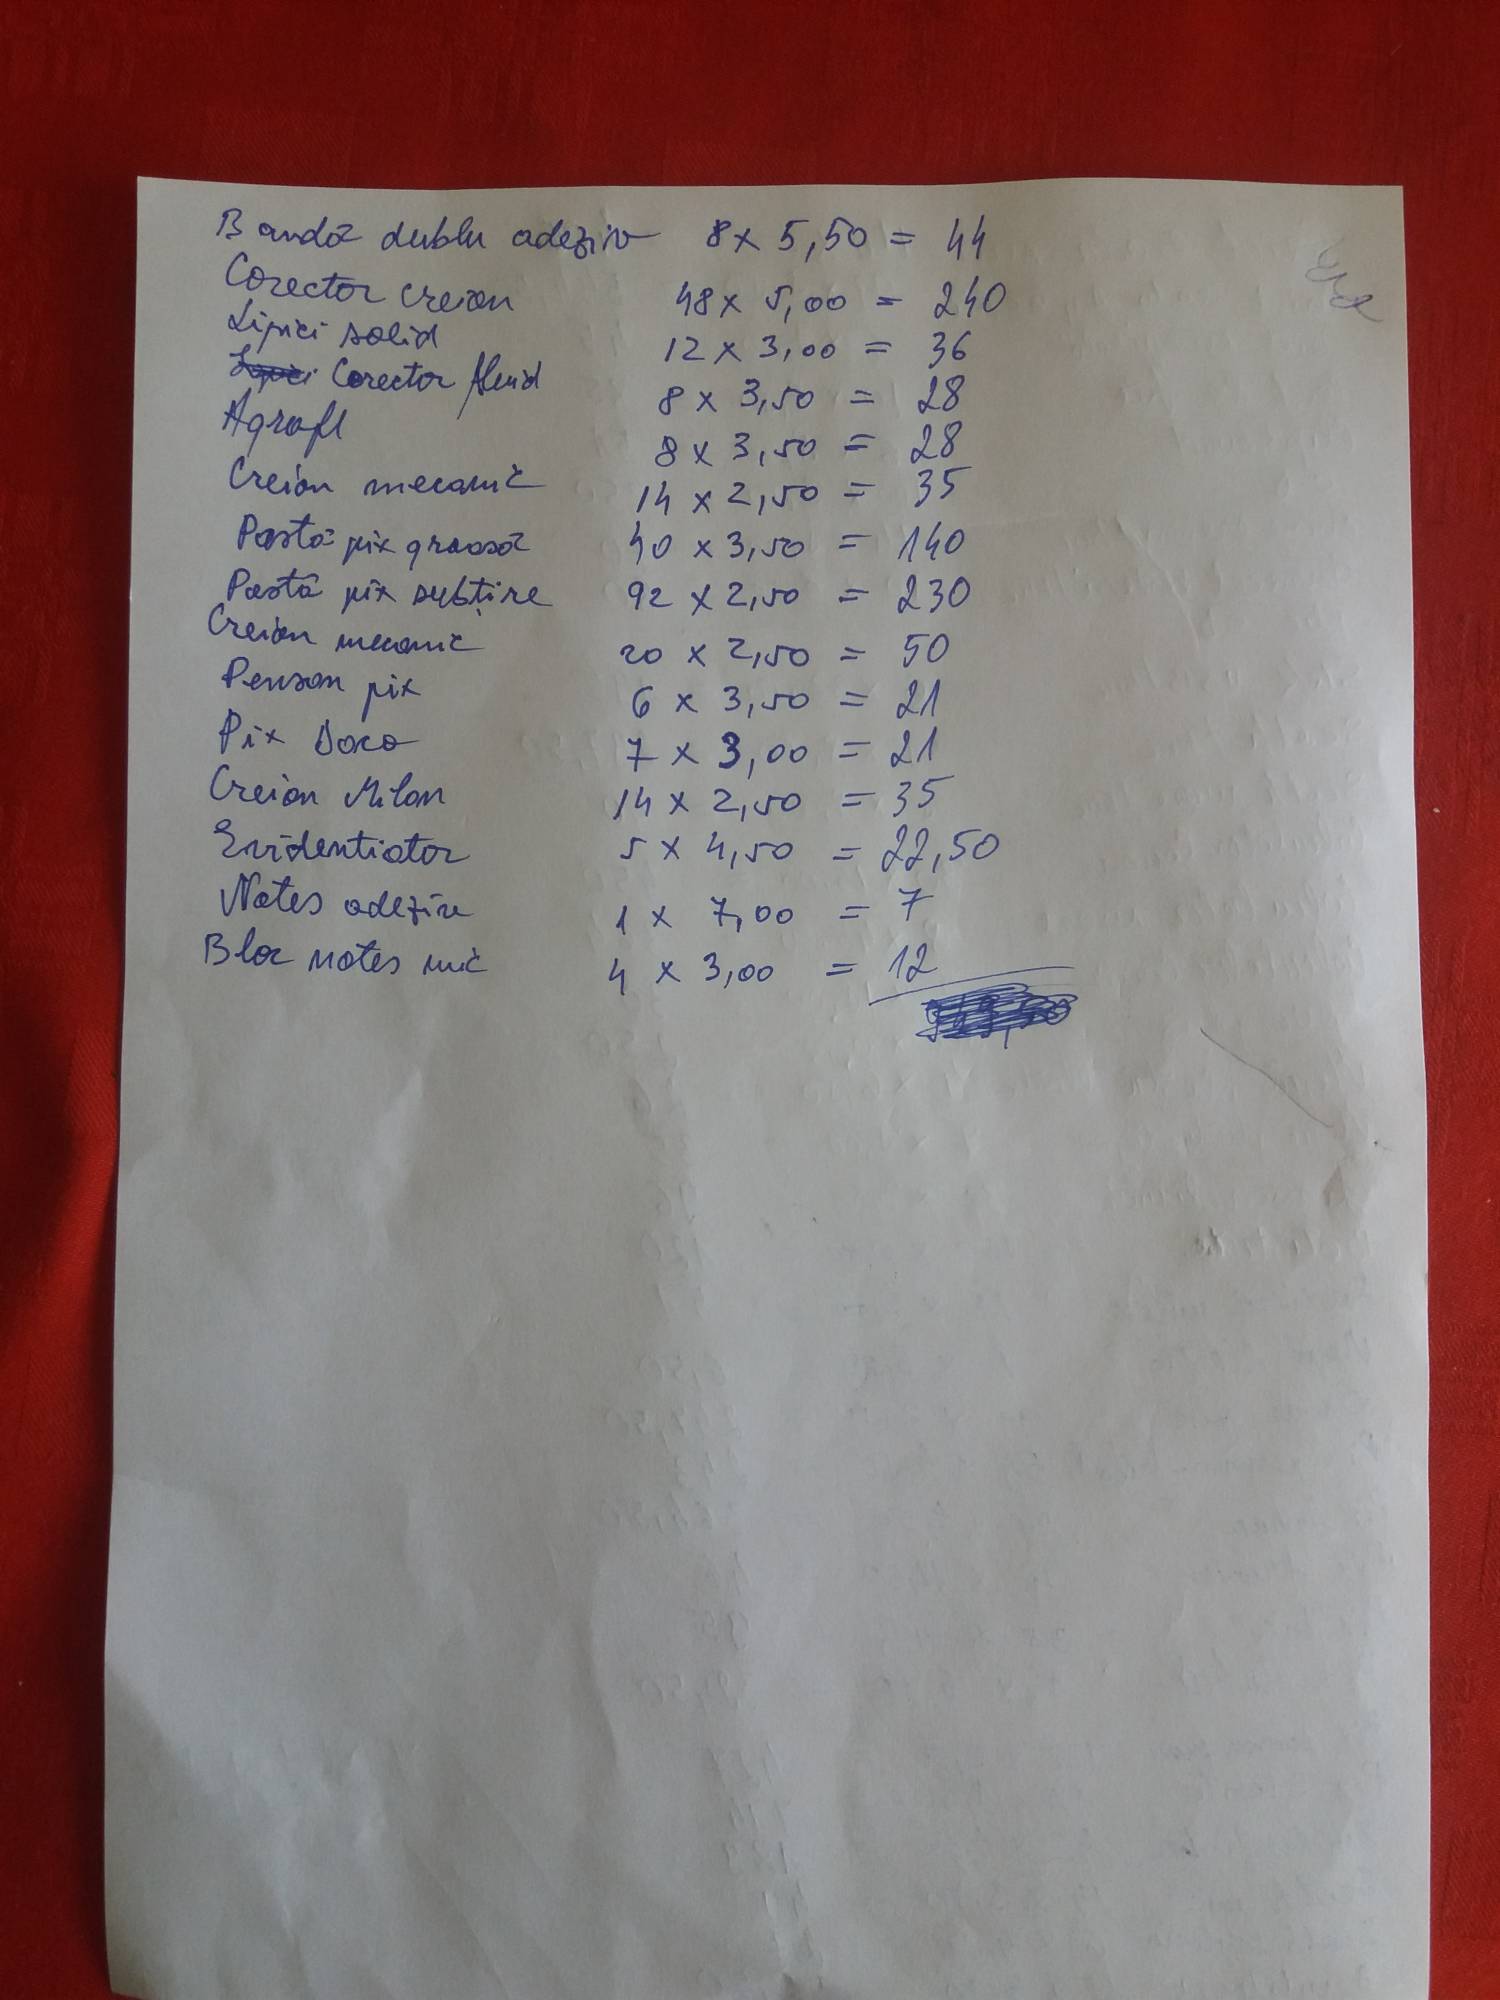 Bandă dublu adeziv 8 x 5,50 = 44
Corector creion 48 x 5,00 = 240
Lipici solid 12 x 3,00 = 36
Corector fluid 8 x 3,50 = 28
Agrafe 8 x 3,50 = 28
Creion mecanic 14 x 2,50 = 35
Pastă pix groasă 40 x 3,50 = 140
Pastă pix subțire 92 x 2,50 = 230
Creion mecanic 20 x 2,50 = 50
Penson pix 6 x 3,50 = 21
Pix Daco 7 x 3,00 = 21
Creion Milan 14 x 2,50 = 35
Evidentiator 5 x 4,50 = 22,50
Notes adezive 1 x 7,00 = 7
Bloc notes mic 4 x 3,00 = 12